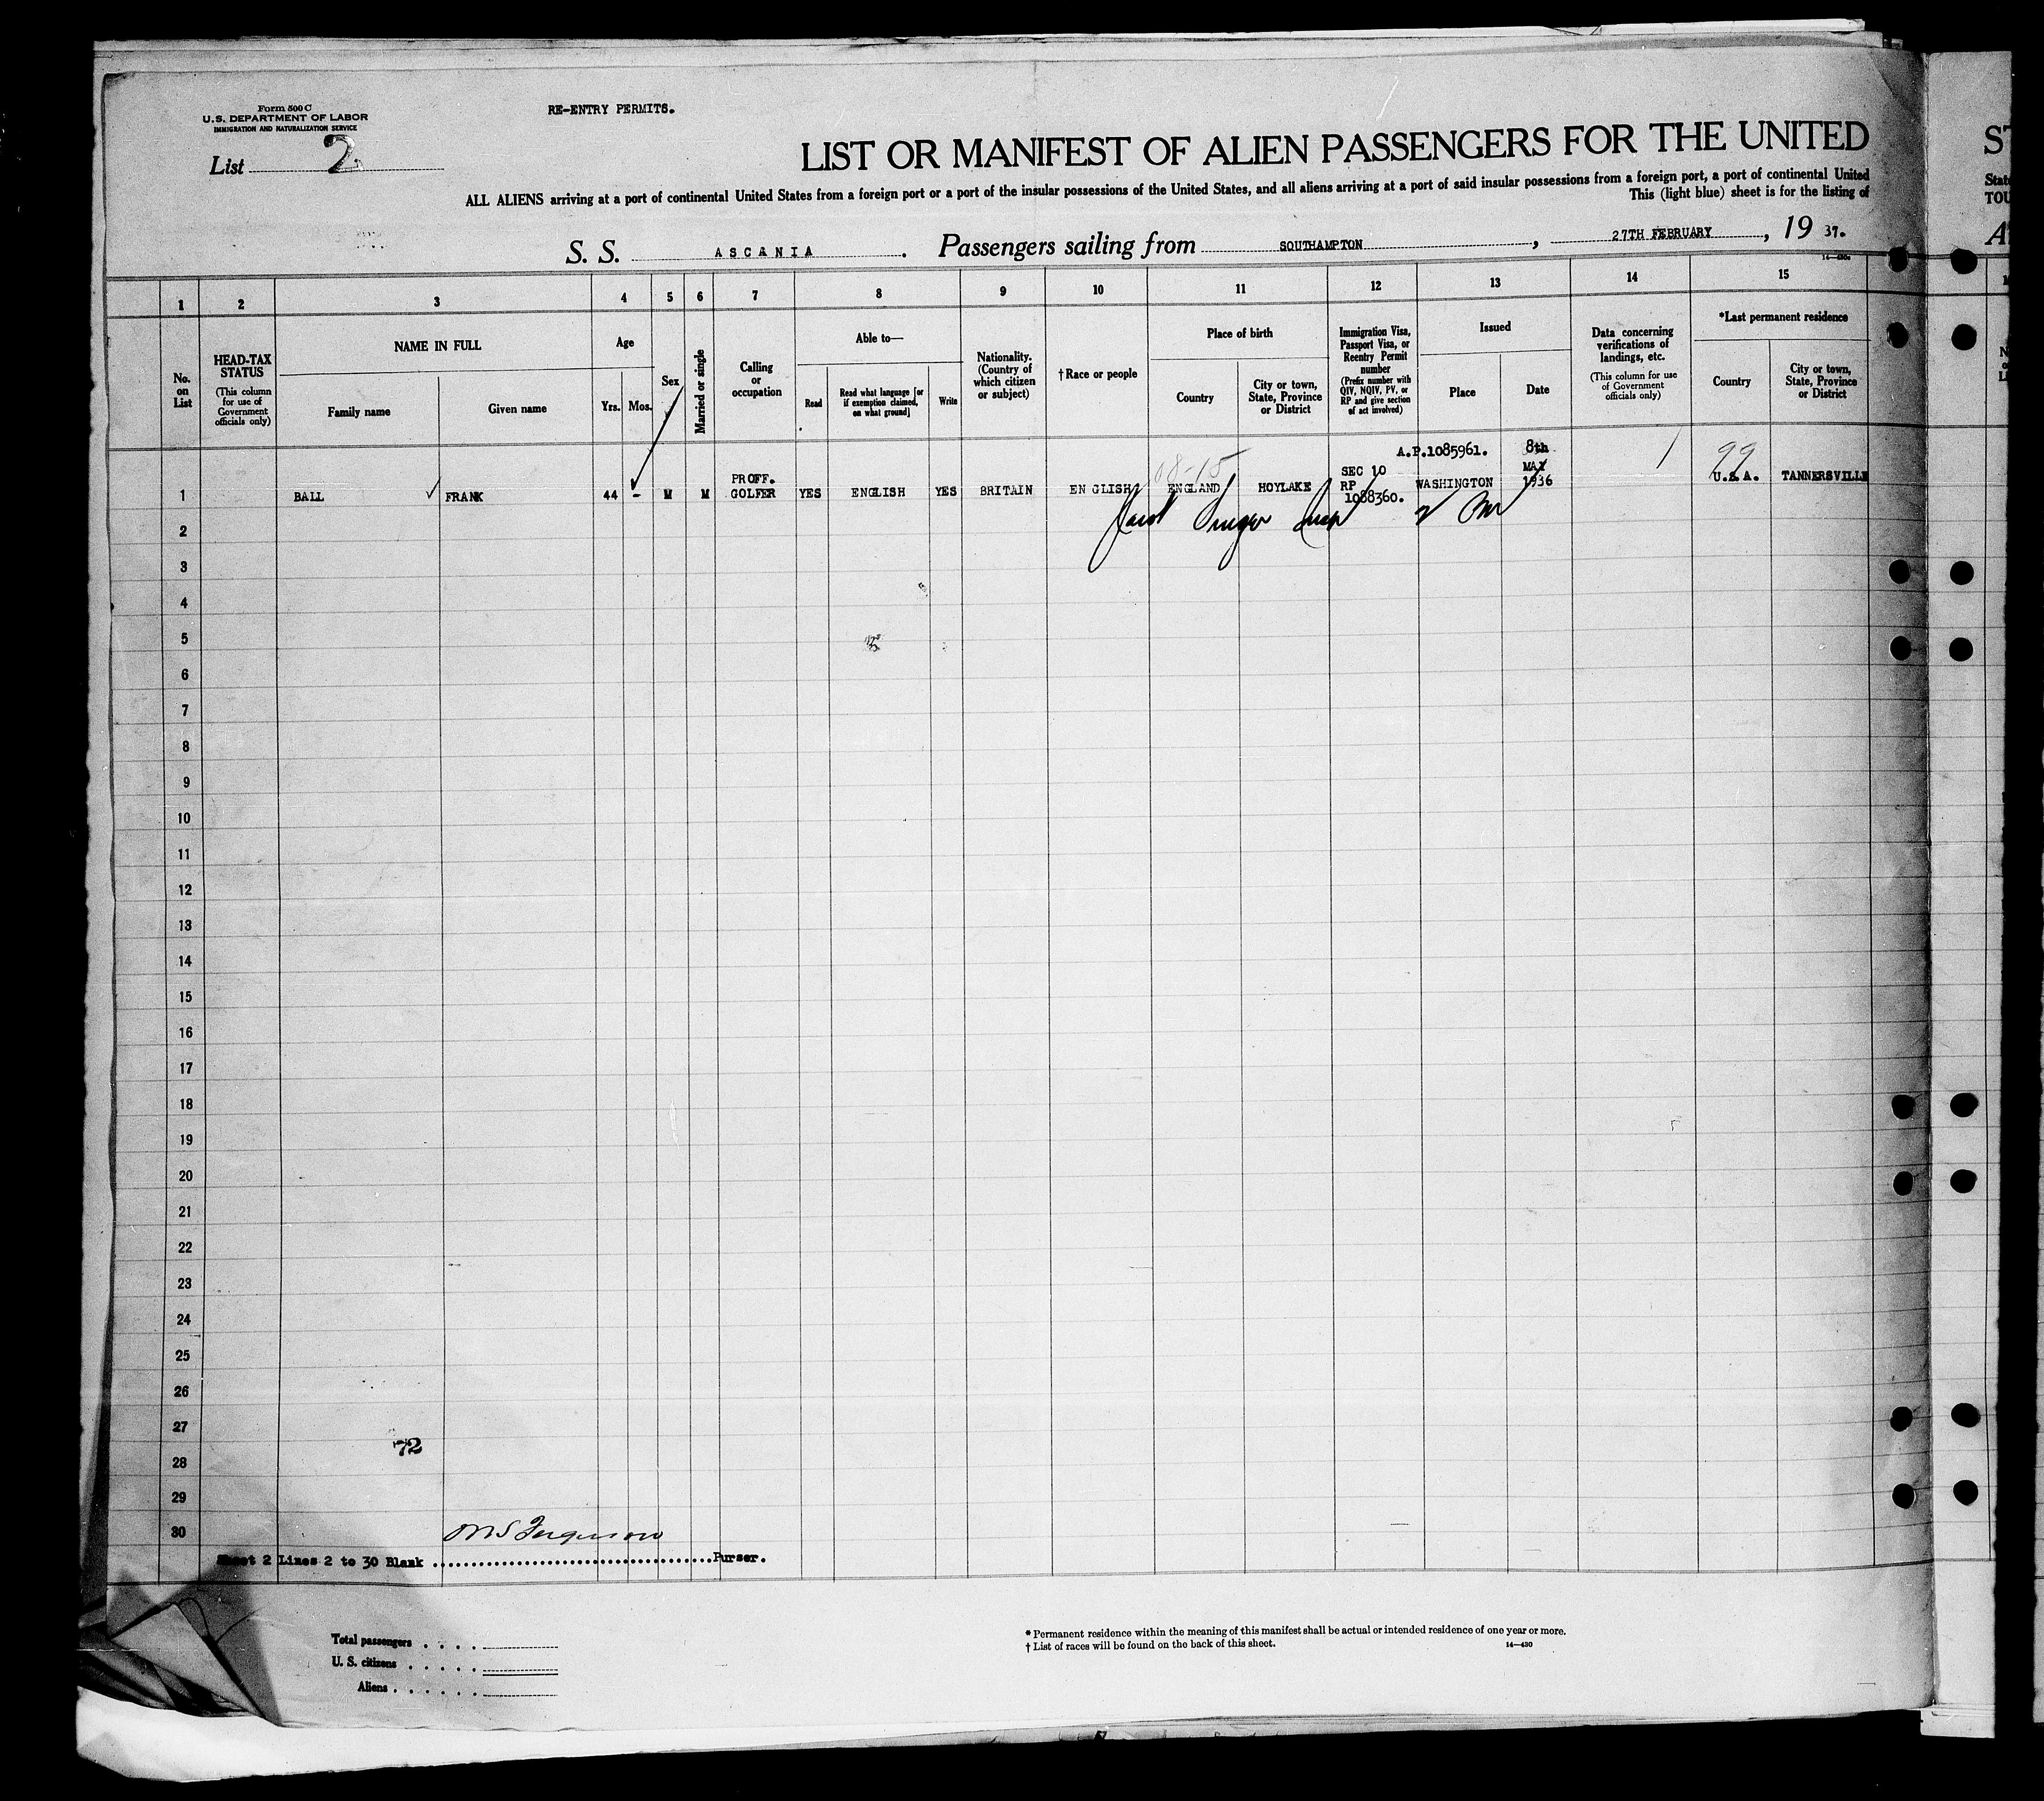 Form 500 C
U.S. DEPARTMENT OF LABOR
IMMIGRATION AND NATURALIZATION SERVICE
RE-ENTRY PERMITS.
List 2
LIST OR MANIFEST OF ALIEN PASSENGERS FOR THE UNITED
ST
ALL ALIENS arriving at a port of continental United States from a foreign port or a port of the insular possessions of the United States, and all aliens arriving at a port of said insular possessions from a foreign port, a port of continental United
This (light blue) sheet is for the listing of
S. S. ASCANIA. Passengers sailing from SOUTHAMPTON, 27TH FEBRUARY, 19 37.
14—430
1 2 3 4 5 6 7 8 9 10 11 12 13 14 15
No. on List
HEAD-TAX STATUS
(This column for use of Government officials only)
NAME IN FULL
Family name
Given name
Age
Yrs.
Mos.
Sex
Married or single
Calling or occupation
Able to—
Read
Read what language [or if exemption claimed, on what ground]
Write
Nationality. (Country of which citizen or subject)
†Race or people
Place of birth
Country
City or town, State, Province or District
Immigration Visa, Passport Visa, or Reentry Permit number
(Prefix number with QIV, NQIV, PV, or RP and give section of act involved)
Issued
Place
Date
Data concerning verifications of landings, etc.
(This column for use of Government officials only)
*Last permanent residence
Country
City or town, State, Province or District
A.P.1085961. 8th
08-15
99
1 BALL FRANK 44 - M M PROFF. GOLFER YES ENGLISH YES BRITAIN ENGLISH ENGLAND HOYLAKE SEC 10 RP 1088360. WASHINGTON MAY 1936 U.S.A. TANNERSVILLE
2
3
4
5
6
7
8
9
10
11
12
13
14
15
16
17
18
19
20
21
22
23
24
25
26
27
72
28
29
30
Sheet 2 Lines 2 to 30 Blank Purser.
Total passengers
U. S. citizens
Aliens
* Permanent residence within the meaning of this manifest shall be actual or intended residence of one year or more.
† List of races will be found on the back of this sheet. 14—430